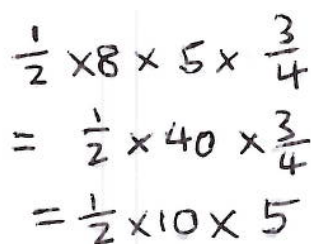 1/2 ×8 × 5 × 3/4
= 1/2 × 40 × 3/4
= 1/2 ×10 × 5